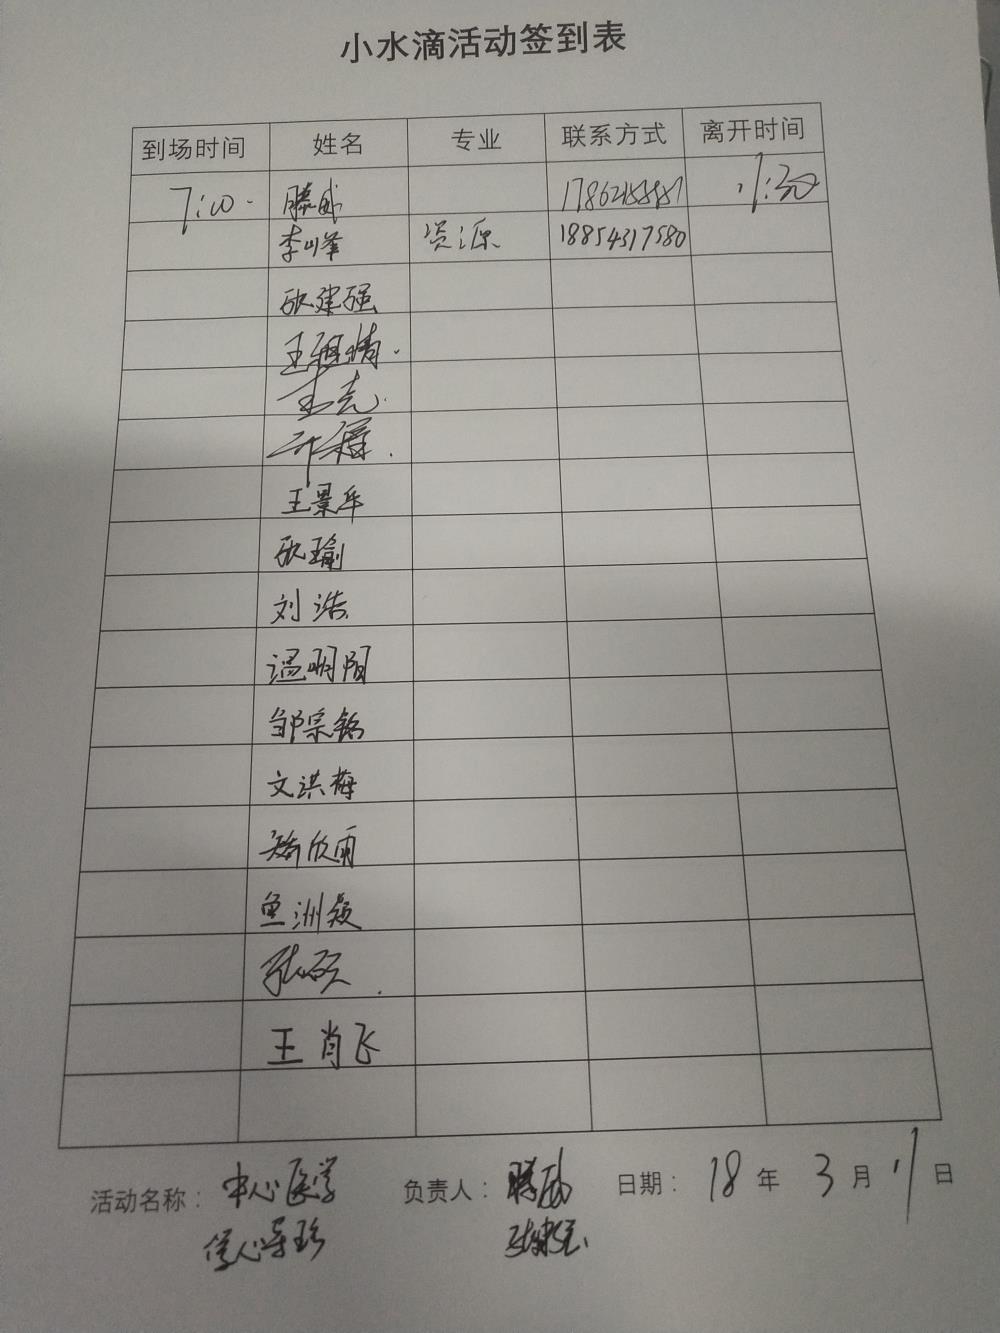 小水滴活动签到表
到场时间 姓名 专业 联系方式 离开时间
7:00 滕威 11:30
李峰 资源 18854317580
张建强
王
王亮
王景华
张瑜
刘浩
温明阳
邹宗铭
文洪梅
欣雨
鱼洲
张硕
王肖飞
活动名称： 中心医学 负责人： 滕威 日期： 18 年 3 月 11 日
导珍 张建强